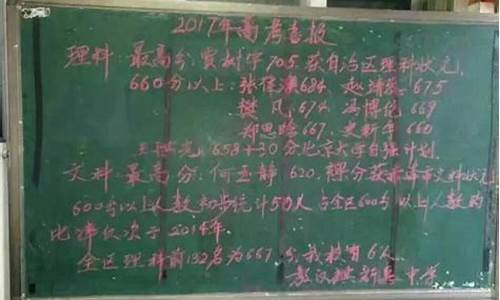 2017年高考喜报
理科:最高分:贾树华705.获自治区理科状元.
660分以上:张佳 684 赵 675
樊 凤 674 冯博伦 669
郑思 667 史新华 660
王 光 658+30分北京大学自强计划.
文科:最高分:何孟静 620 裸分获 市文科状元
600分以上人数初步统计50人占全区600分以上人数的
比率仅次于2014年.
全区理科前132名为667分,我校有6人
敖汉旗新惠中学